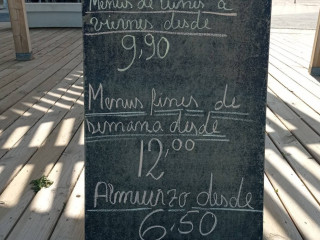 Menus de lunes a
viernes desde
9,90
Menus fines de
semana desde
12,00
Almuerzo desde
6,50